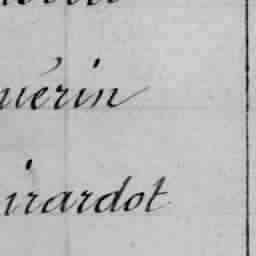 uérin
irardot